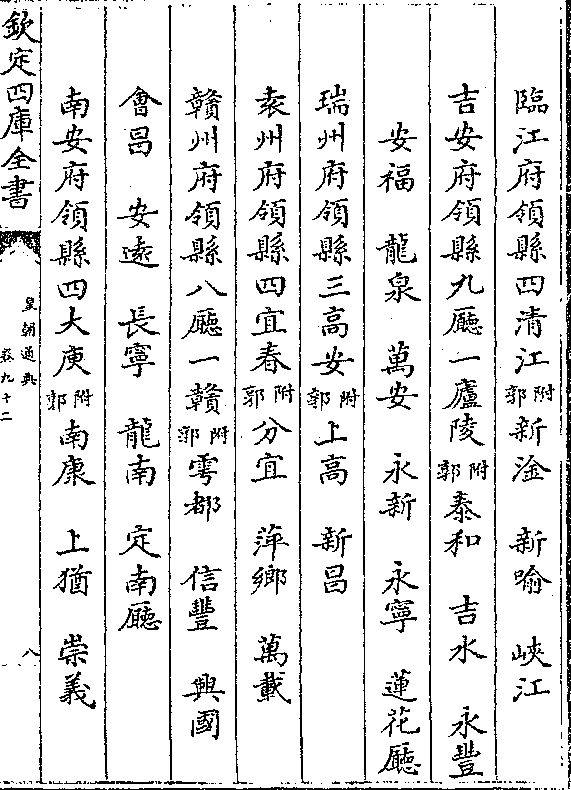 臨江府領縣四清江附郭新淦 新喻 峽江
吉安府領縣九廳一廬陵附郭泰和 吉水 永豐
安福 龍泉 萬安 永新 永寧 蓮花廳
瑞州府領縣三高安附郭上高 新昌
袁州府領縣四宜春附郭分宜 萍鄉 萬載
贛州府領縣八廳一贛附郭雩都 信豐 興國
會昌 安遠 長寧 龍南 定南廳
南安府領縣四大庾附郭南康 上猶 崇義
欽定四庫全書
皇朝通典
卷九十二
八